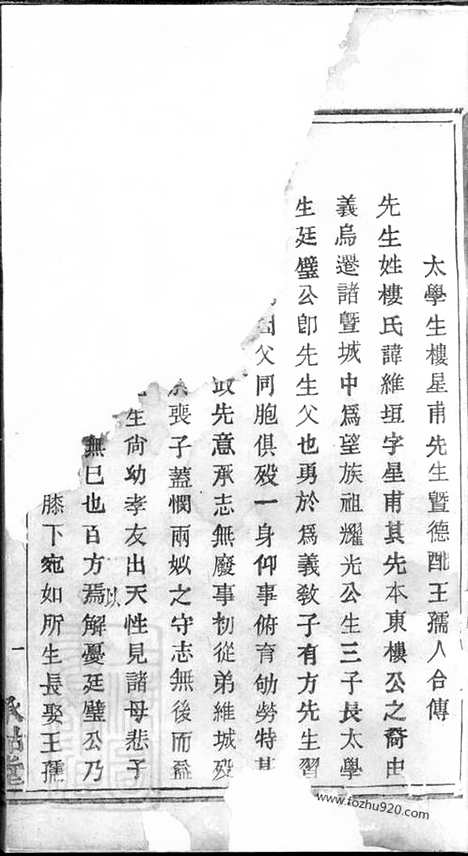 太學生樓星甫先生暨德配王孺人合傳
先生姓樓氏諱維垣字星甫其先本東樓公之裔由
義烏遷諸暨城中爲望族祖耀光公生三子長太學
生廷璧公卽先生父也勇於爲義敎子有方先生習
父同胞俱歿一身仰事俯育劬勞特甚
先意承志無廢事初從弟維城歿
喪子蓋憫兩姒之守志無後而益
生尙幼孝友出天性見諸母悲子
無已也百方以焉解憂廷璧公乃
膝下宛如所生長娶王孺
一
www.fozhu920.com